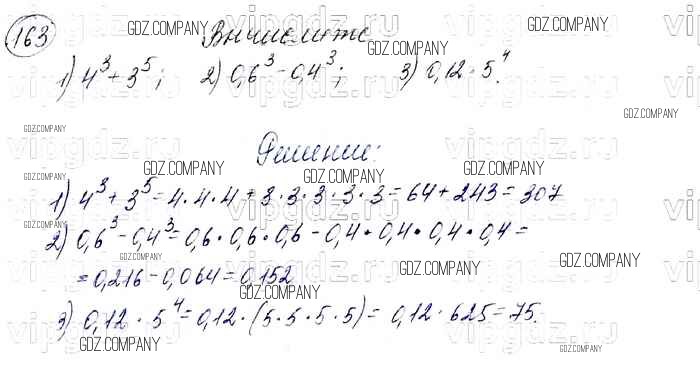 163 Вычислите
1) 4³ + 3⁵; 2) 0,6³ - 0,4³; 3) 0,12 · 5⁴.
Решение:
1) 4³ + 3⁵ = 4 · 4 · 4 + 3 · 3 · 3 · 3 · 3 = 64 + 243 = 307
2) 0,6³ - 0,4³ = 0,6 · 0,6 · 0,6 - 0,4 · 0,4 · 0,4 · 0,4 =
= 0,216 - 0,064 = 0,152
3) 0,12 · 5⁴ = 0,12 · (5 · 5 · 5 · 5) = 0,12 · 625 = 75.
GDZ.COMPANY
vipgdz.ru